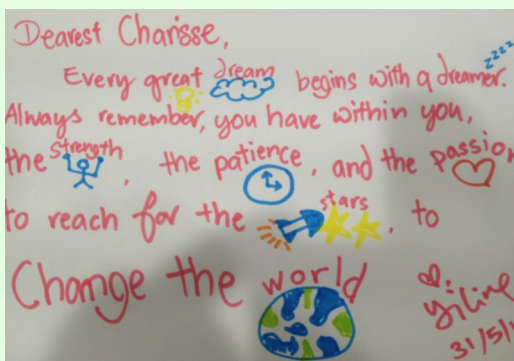 Dearest Charisse,
Every great dream begins with a dreamer. zzzz
Always remember, you have within you,
the strength, the patience, and the passion
to reach for the stars, to
Change the world
Yiling